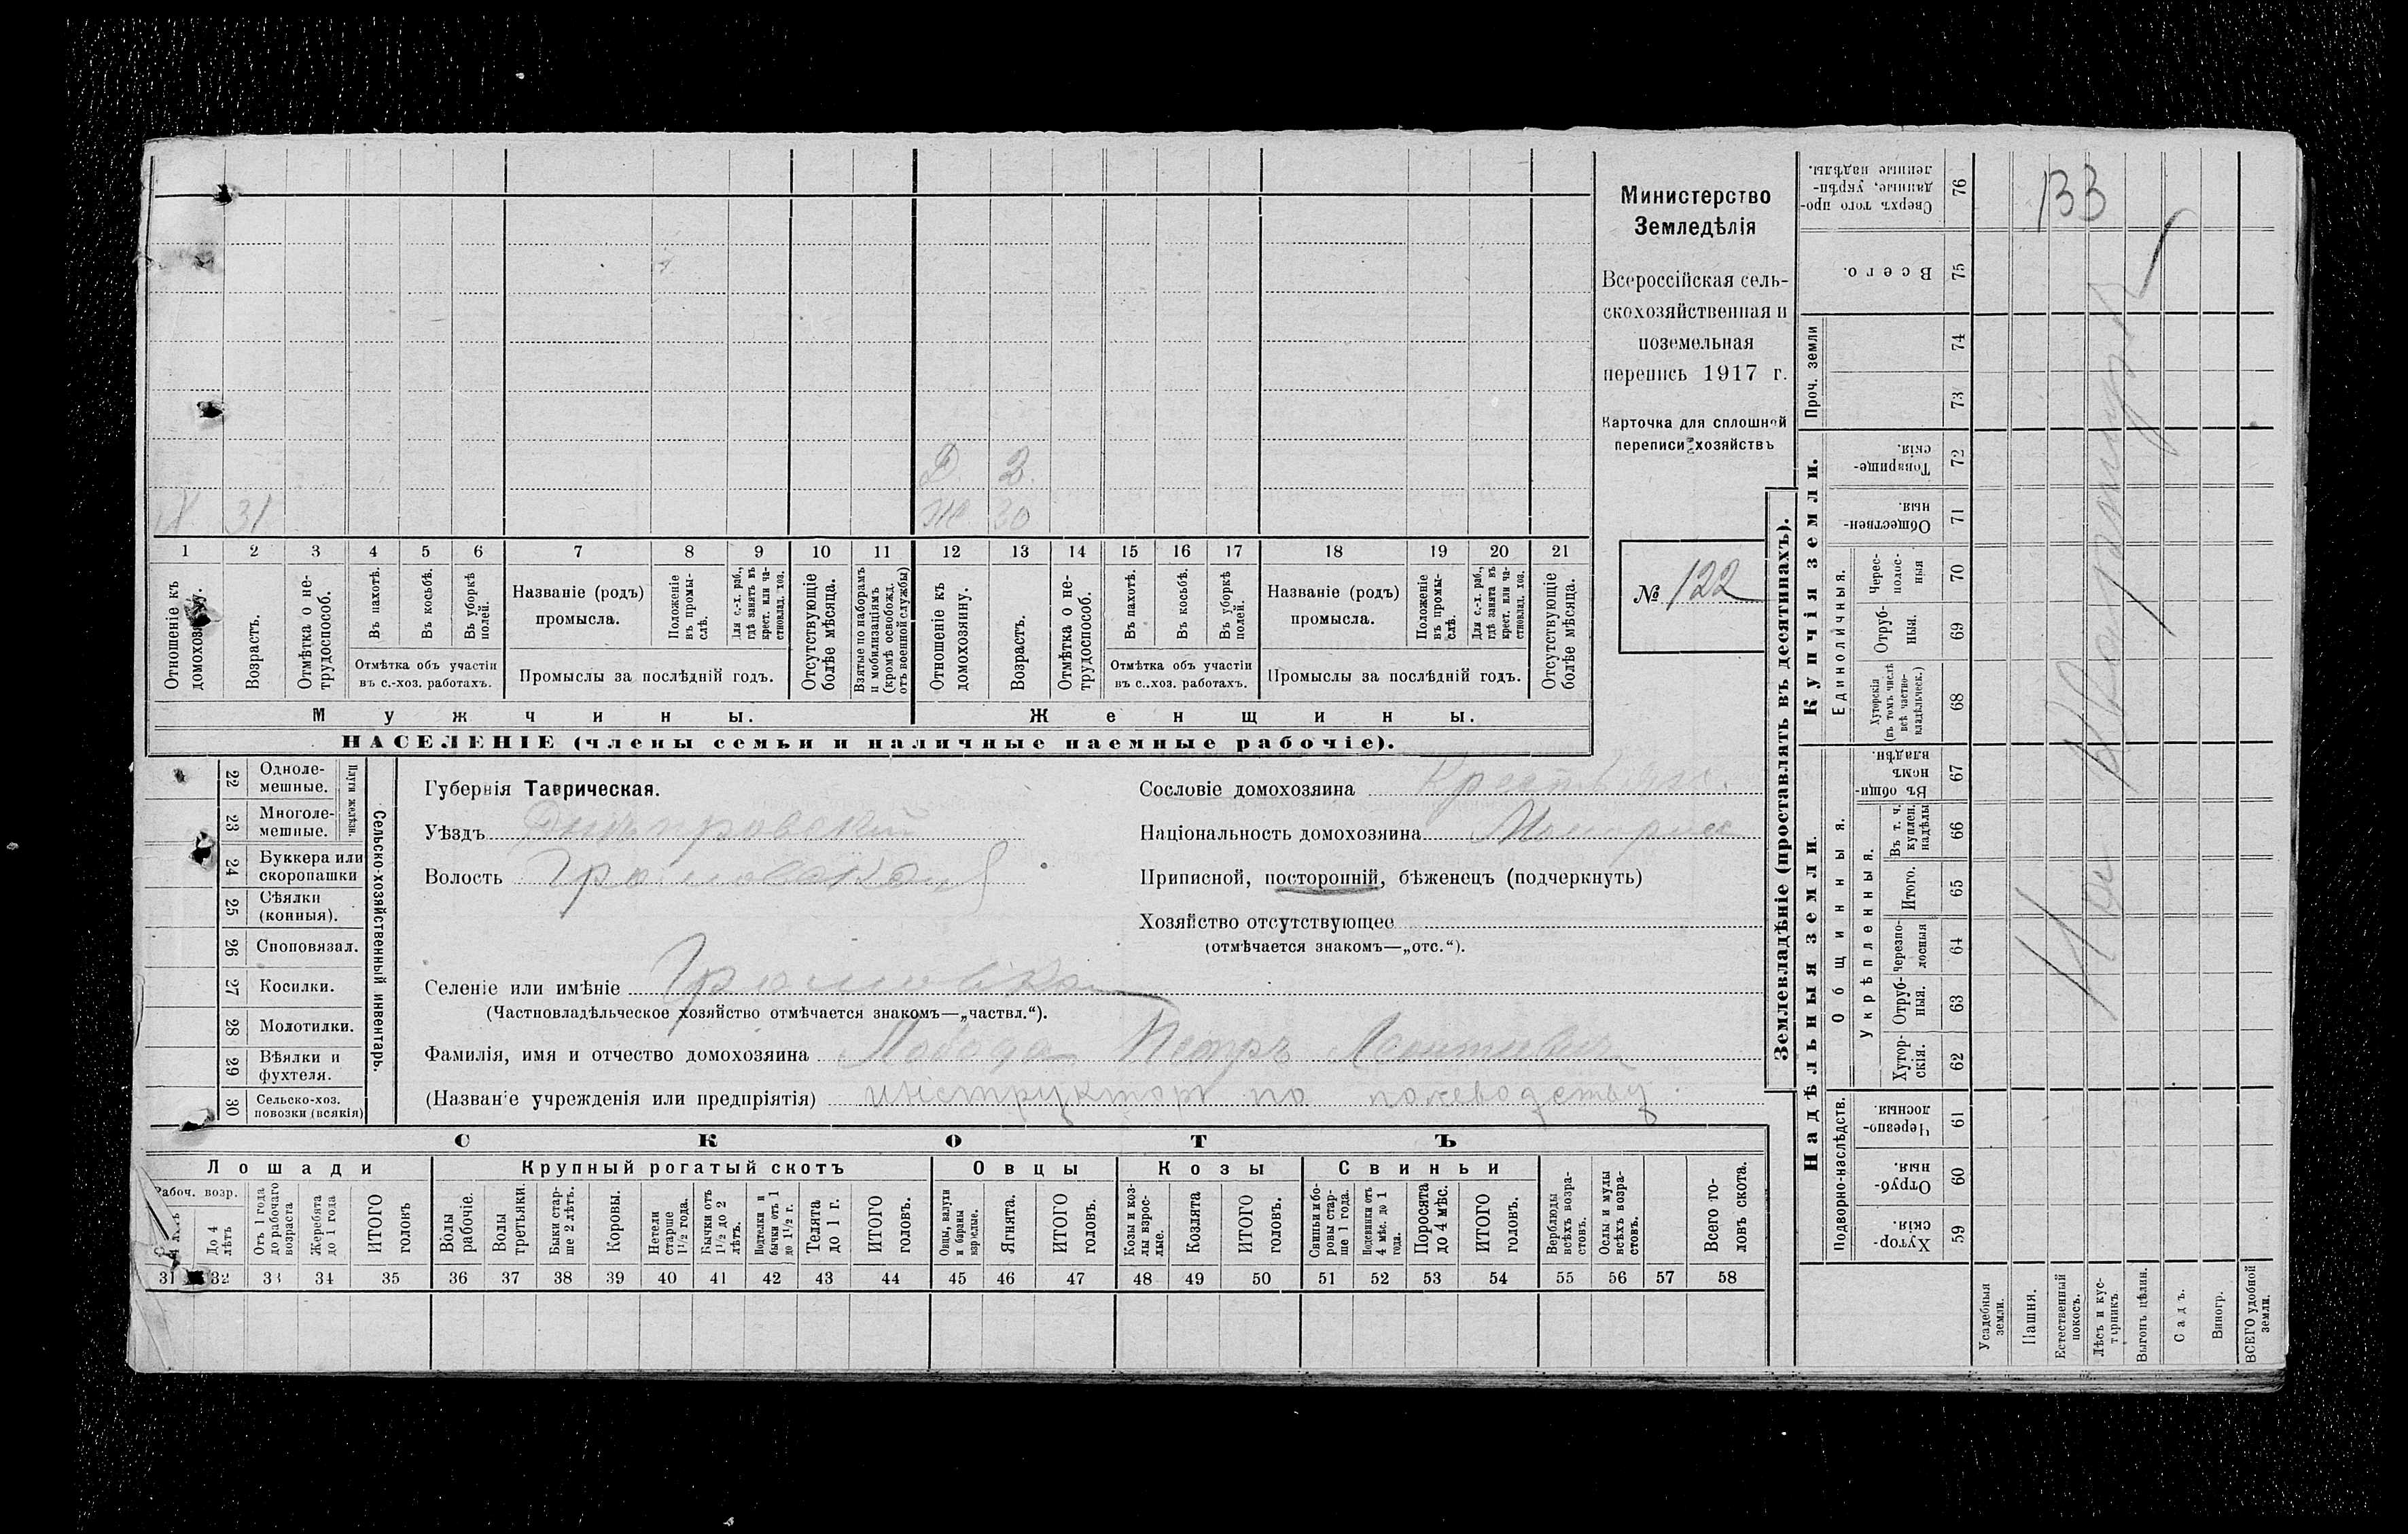 Министерство
Земледѣлія
Всероссійская сель-
скохозяйственная и
поземельная
перепись 1917 г.
Карточка для сплошной
переписи хозяйствъ
№ 122
Д. 3.
Х 31
Ж 30
1 2 3 4 5 6 7 8 9 10 11 12 13 14 15 16 17 18 19 20 21
Отношеніе къ домохозяину.
Возрастъ.
Отмѣтка о не-трудоспособ.
Въ пахотѣ.
Въ косьбѣ.
Въ уборкѣ полей.
Отмѣтка объ участіи
въ с.-хоз. работахъ.
Названіе (родъ)
промысла.
Положеніе въ промы-слѣ.
Для с.-х. раб., гдѣ занятъ въ крест. или ча-стновлад. хоз.
Промыслы за послѣдній годъ.
Отсутствующіе болѣе мѣсяца.
Взятые по наборамъ и мобилизаціямъ (кромѣ освобожд. отъ военной службы)
Отношеніе къ домохозяину.
Возрастъ.
Отмѣтка о не-трудоспособ.
Въ пахотѣ.
Въ косьбѣ.
Въ уборкѣ полей.
Отмѣтка объ участіи
въ с..хоз. работахъ.
Названіе (родъ)
промысла.
Положеніе въ промы-слѣ.
Для с.-х. раб., гдѣ занята въ крест. или ча-стновлад. хоз.
Промыслы за послѣдній годъ.
Отсутствующіе болѣе мѣсяца.
Мужчины. Женщины.
НАСЕЛЕНІЕ (члены семьи и наличные наемные рабочіе).
Сельско-хозяйственный инвентарь.
Плуги желѣзн.
22 Одноле-мешные.
23 Многоле-мешные.
24 Буккера или скоропашки
25 Сѣялки (конныя).
26 Сноповязал.
27 Косилки.
28 Молотилки.
29 Вѣялки и фухтеля.
30 Сельско-хоз. повозки (всякія)
Губернія Таврическая.
Уѣздъ Днѣпровскій
Волость Громовская
Селеніе или имѣніе Громовка
(Частновладѣльческое хозяйство отмѣчается знакомъ—„частвл.“).
Фамилія, имя и отчество домохозяина Лобода Петръ
(Названіе учрежденія или предпріятія) инструкторъ по полеводству.
Сословіе домохозяина Крестьян.
Національность домохозяина
Приписной, посторонній, бѣженецъ (подчеркнуть)
Хозяйство отсутствующее
(отмѣчается знакомъ—„отс.“).
СКОТЪ
Лошади
Рабоч. возр.
До 4 лѣтъ
Отъ 1 года до рабочаго возраста
Жеребята до 1 года
ИТОГО головъ
Крупный рогатый скотъ
Волы рабочіе.
Волы третьяки.
Быки стар-ше 2 лѣтъ.
Коровы.
Нетели старше 1½ года.
Бычки отъ 1½ до 2 лѣтъ.
Подтелки и бычки отъ 1 до 1½ г.
Телята до 1 г.
ИТОГО головъ.
Овцы
Овцы, валухи и бараны взрослые.
Ягнята.
ИТОГО головъ.
Козы
Козы и коз-лы взрос-лые.
Козлята
ИТОГО головъ.
Свиньи
Свиньи и бо-ровы стар-ше 1 года.
Подсвинки отъ 4 мѣс. до 1 года.
Поросята до 4 мѣс.
ИТОГО головъ.
Верблюды всѣхъ возра-стовъ.
Ослы и мулы всѣхъ возра-стовъ.
Всего го-ловъ скота.
31 32 33 34 35 36 37 38 39 40 41 42 43 44 45 46 47 48 49 50 51 52 53 54 55 56 57 58
Землевладѣніе (проставлять въ десятинахъ).
Купчія земли.
Сверхъ того про-данные, укрѣп-ленные надѣлы. 76
Всего. 75
Проч. земли 74 73
Товарище-скія. 72
Обществен-ныя. 71
Единоличныя.
Черес-полос-ныя 70
Отруб-ныя. 69
Хуторскія (въ томъ числѣ всѣ частно-владѣльческ.) 68
Надѣльныя земли.
Общинныя.
Въ общи-номъ владѣн. 67
Укрѣпленныя.
Въ т. ч. куплен. надѣлы 66
Итого. 65
Черезпо-лосныя 64
Отруб-ныя. 63
Хутор-скія. 62
Подворно-наслѣдств.
Черезпо-лосныя. 61
Отруб-ныя. 60
Хутор-скія. 59
Усадебныя земли.
Пашня.
Естественный покосъ.
Лѣсъ и кус-тарникъ
Выгонъ цѣлин.
Садъ.
Виногр.
ВСЕГО удобной земли.
ВЗ